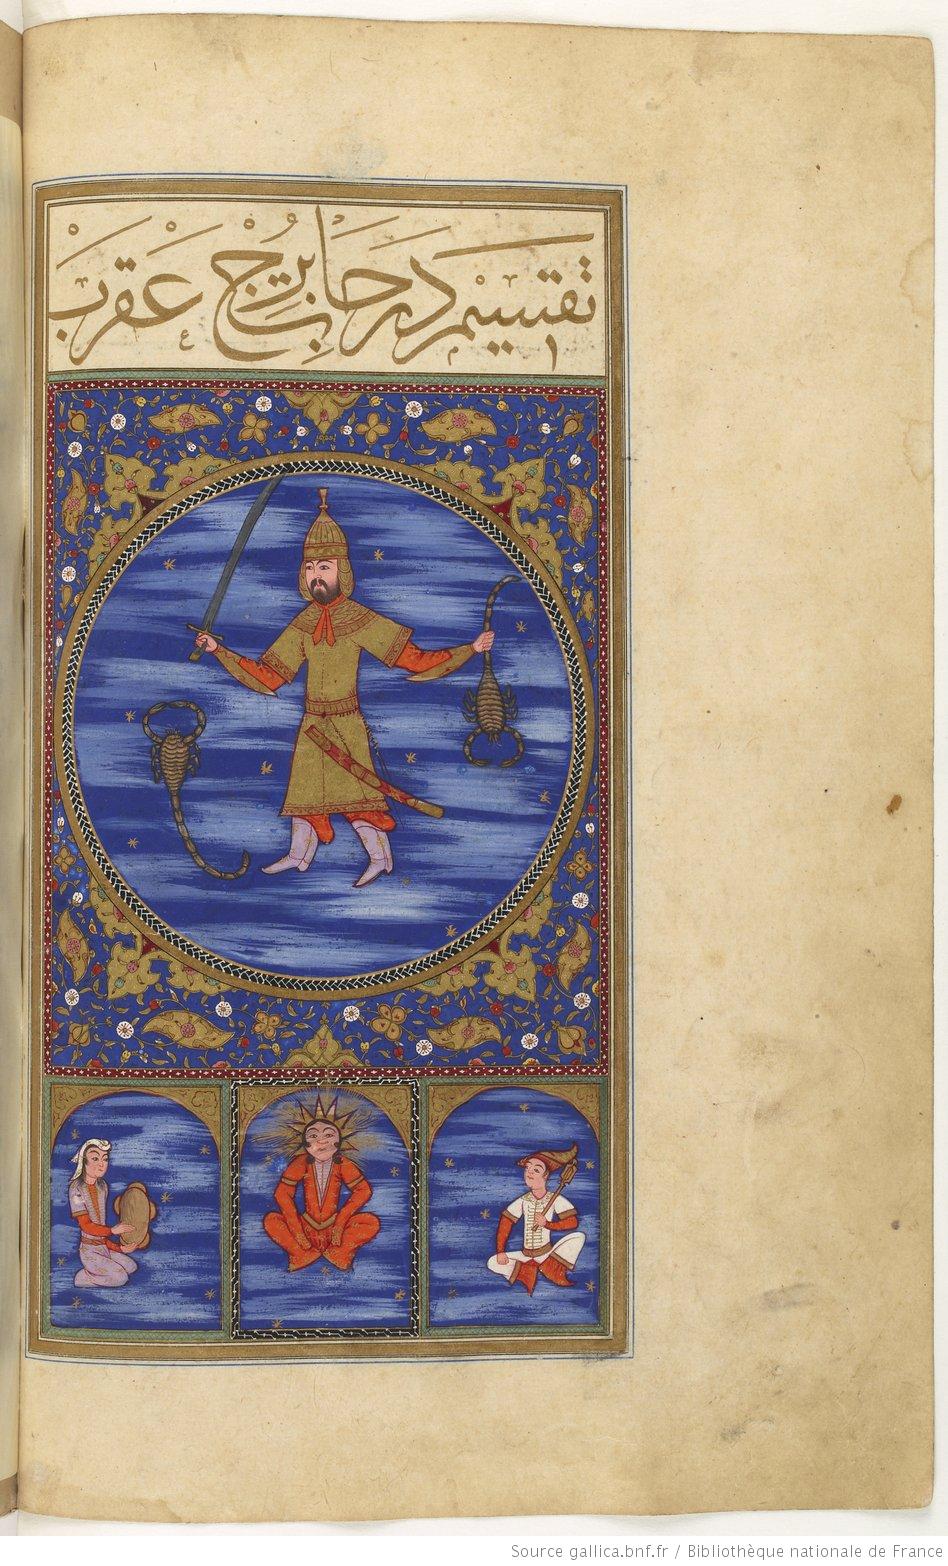 تقسيم درجات برج عقرب
Source gallica.bnf.fr / Bibliothèque nationale de France